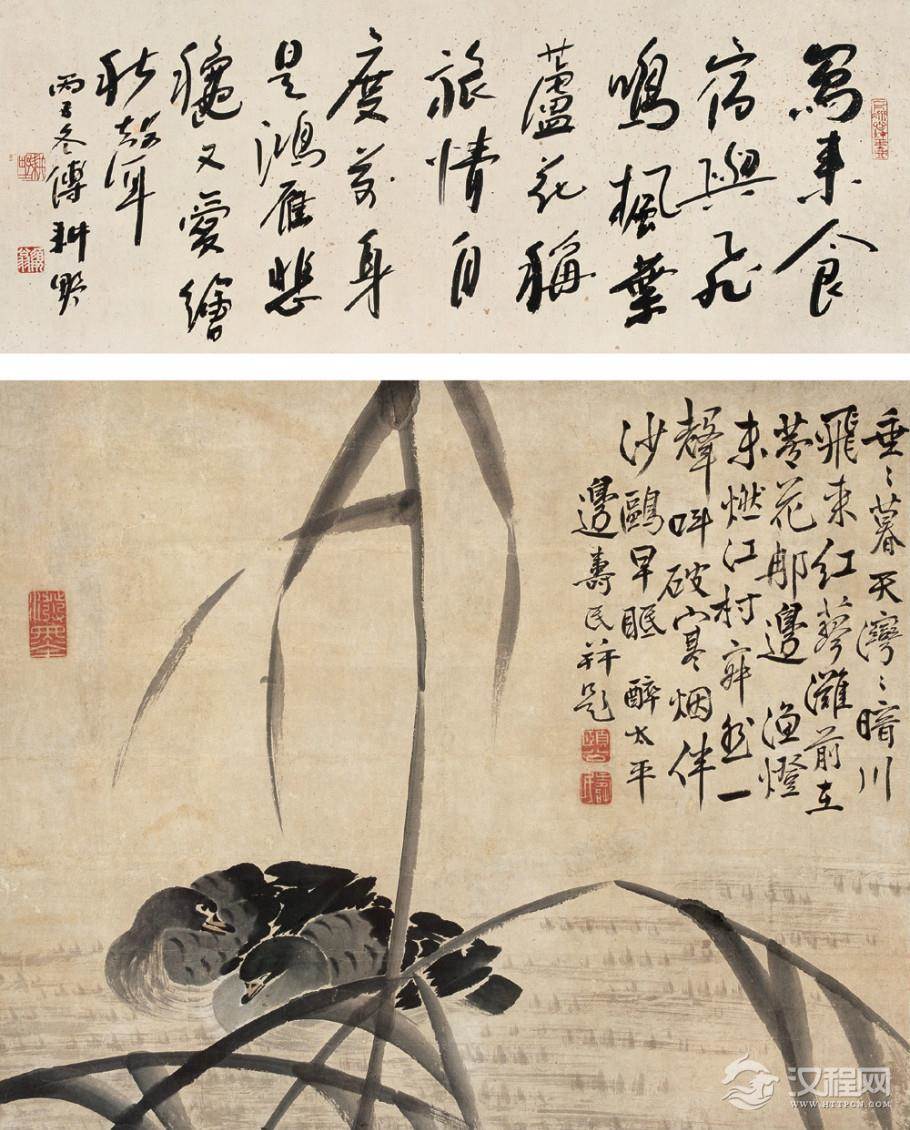 寫来食
宿與飛
鳴楓葉
蘆花稱
旅情自
度前身
是鴻雁悲
龝又愛繪
秋聲
丙子冬傅耕野
垂〻暮天灣〻暗川
飛来紅蓼灘前在
花那邊 漁燈
未燃江村寂然一
聲叫破寒烟伴
沙鷗早眠 醉太平
邊壽民并題
汉程网
WWW.HTTPCN.COM